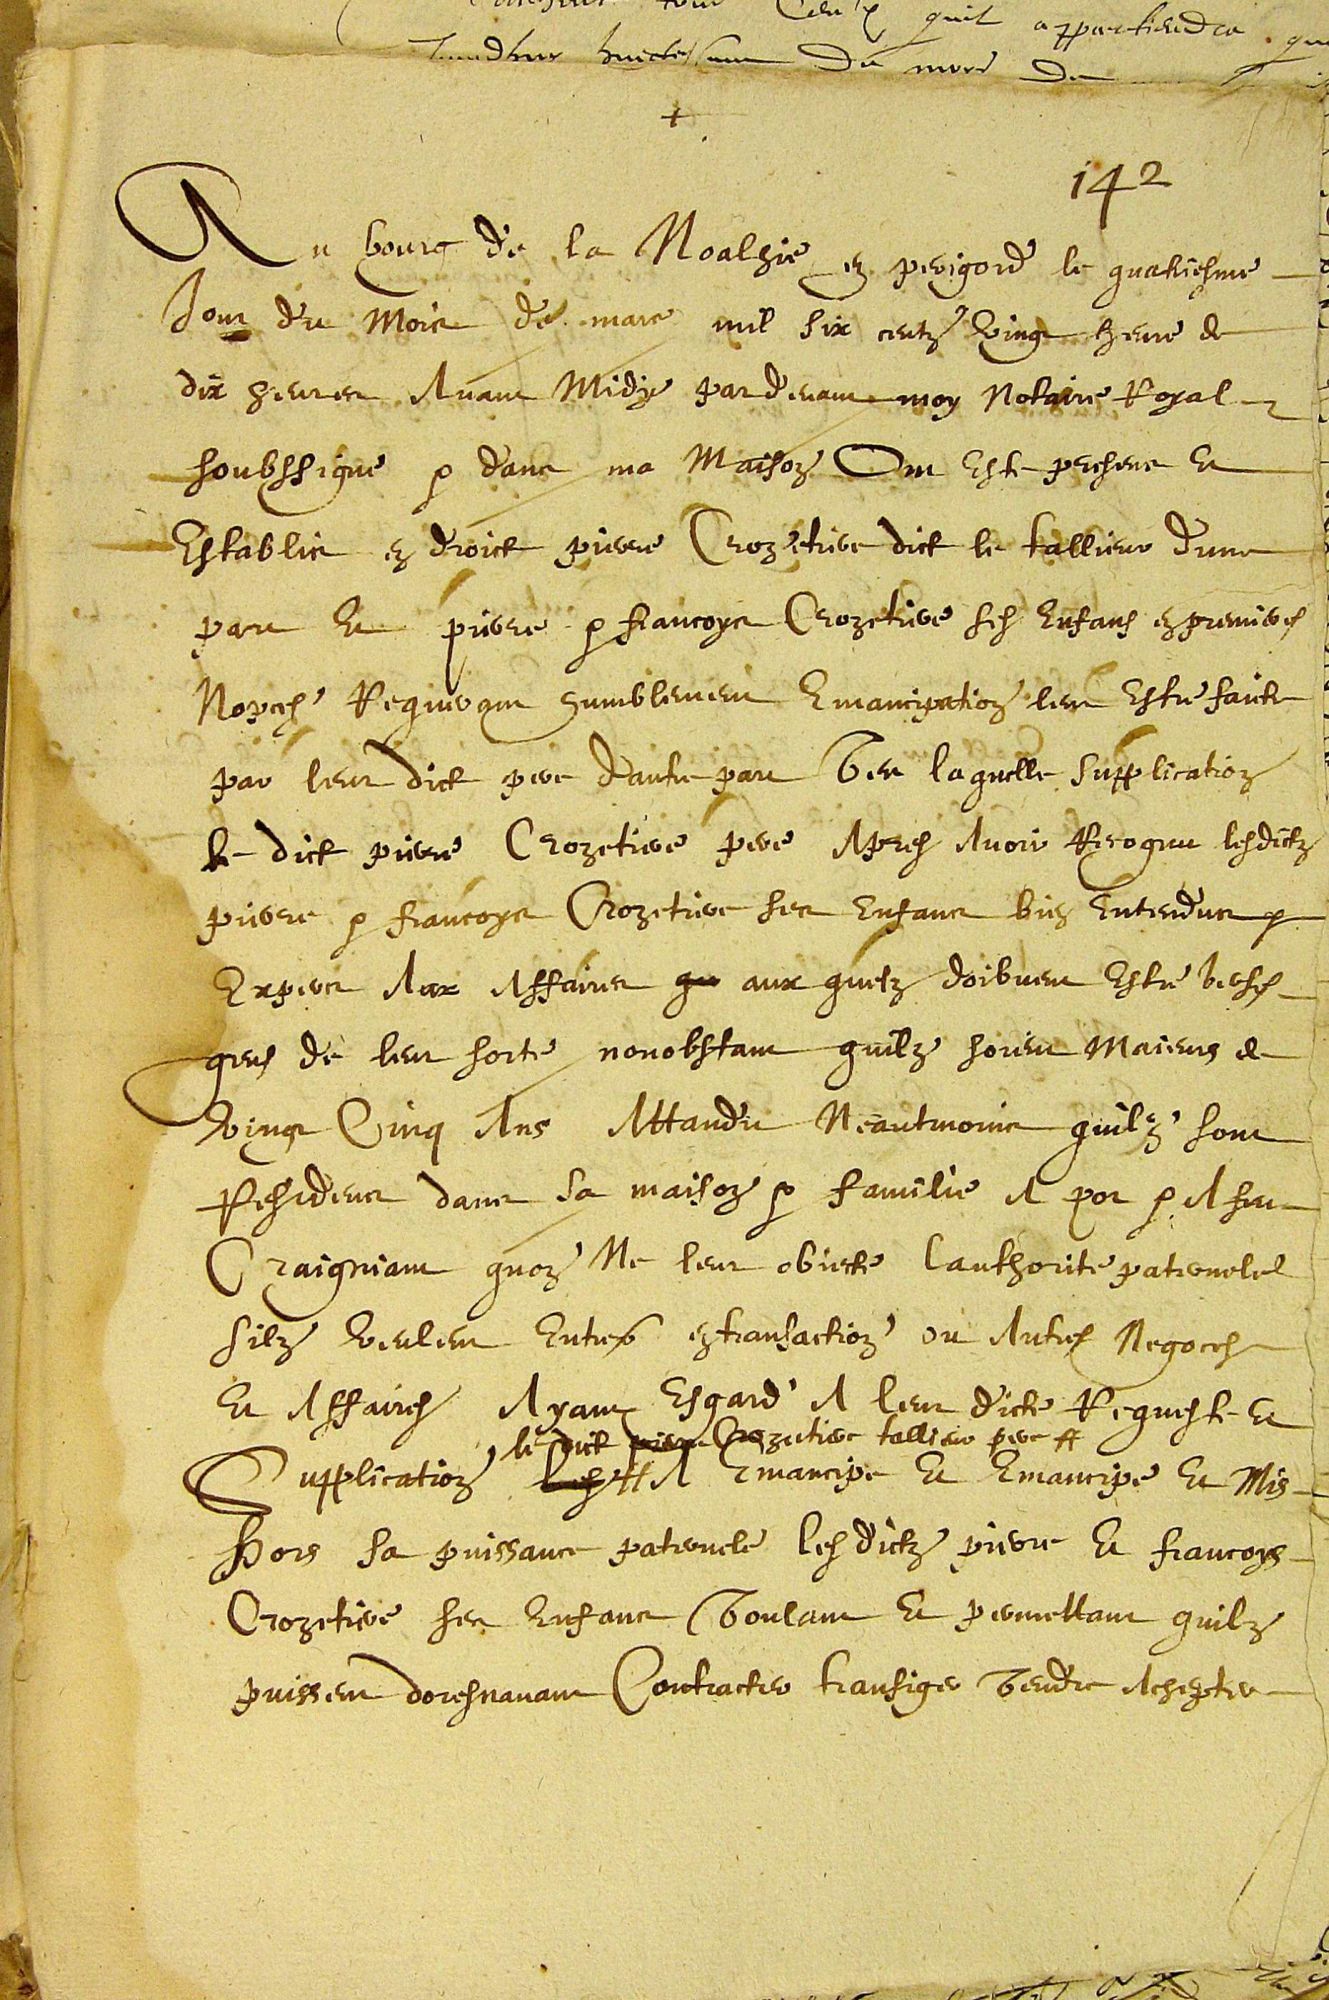 quil appartiendra
du mois de
+
142
Au bourg de la Noalhie en perigord le quatriesme
Jour du Mois de mars mil six centz vingt heure de
dix heures Avant Midy par devant moy Notaire Royal
soubssigne & dans ma Maison Ont este presens Et
Establis en droict pierre Crozetiere dict le tallieur dune
part Et pierre & francoys Crozetiere ses Enfans en premieres
Nopces Requerant humblement Emancipation leur Estre faicte
par leur dict pere dautre part Veu laquelle Supplication
le dict pierre Crozetiere pere Apres Avoir Recogneu lesdictz
pierre & francoys Crozetiere ses Enfans bien Entendus &
Expers Aux Affaires aux quelz doibvent Estre verses
gens de leur sorte nonobstant quilz soient Maieurs de
Vingt Cinq Ans Attandu Neantmoins quilz sont
Residens dans sa maison & familie A pot & A feu
Craigniant quon Ne leur obiecte lauthorite paternelle
silz veulent Entrer en transaction ou Autres Negoces
Et Affaires Ayant Esgard A leur dicte Requeste Et
le dict Crozetiere tallieur pere #
Supplication # A Emancipe Et Emancipe Et Mis
Hors sa puissance paternele lesdictz pierre Et francoys
Crozetiere ses Enfans Voulant Et permettant quilz
puissent doresnavant Contracter transiger Vendre Achepter